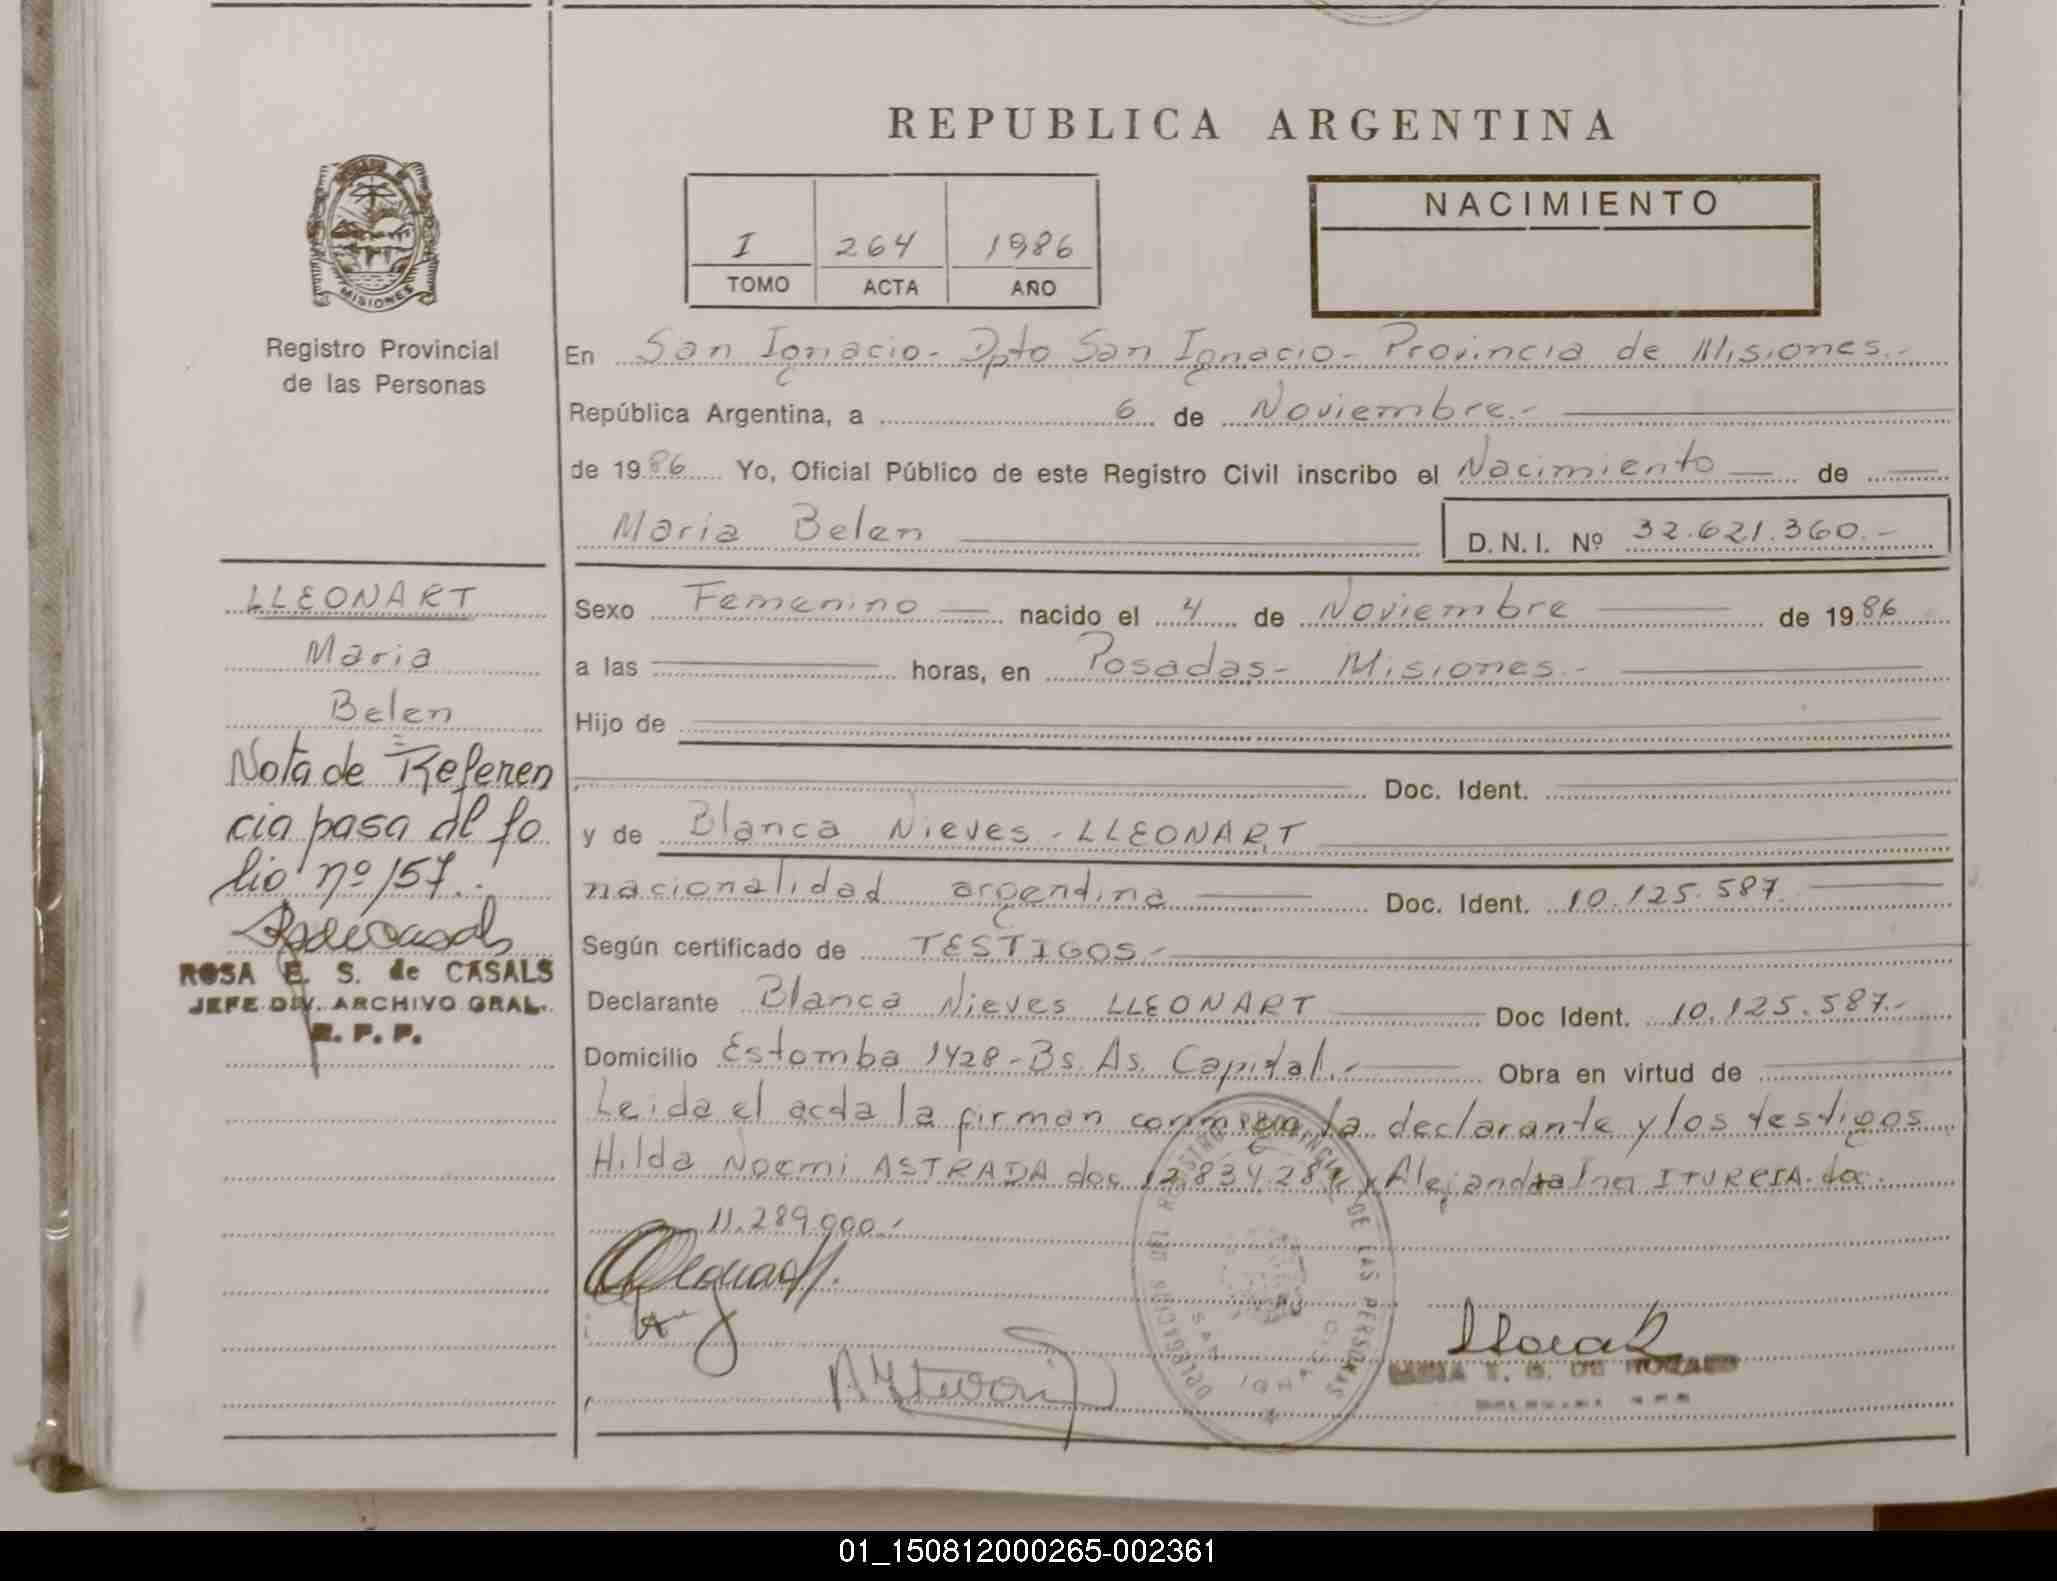 REPUBLICA ARGENTINA
MISIONES
Registro Provincial
de las Personas
I 264 1986
TOMO ACTA AÑO
NACIMIENTO
En San Ignacio - Dpto San Ignacio - Provincia de Misiones.-
República Argentina, a 6 de Noviembre.-
de 1986 Yo, Oficial Público de este Registro Civil inscribo el Nacimiento de
Maria Belen
D.N.I. Nº 32.621.360.-
Sexo Femenino nacido el 4 de Noviembre de 1986
a las horas, en Posadas - Misiones.-
Hijo de
Doc. Ident.
y de Blanca Nieves - LLEONART
nacionalidad argentina Doc. Ident. 10.125.587.
Según certificado de TESTIGOS.-
Declarante Blanca Nieves LLEONART Doc Ident. 10.125.587.-
Domicilio Estomba 1428 - Bs. As. Capital.- Obra en virtud de
Leida el acta la firman conmigo, la declarante y los testigos
Hilda Noemi ASTRADA doc 12.834.289 y Alejandra Ines ITURRIA doc.
11.289.000.-
LLEONART
Maria
Belen
Nota de Referen
cia pasa al fo
lio nº 157.
ROSA E. S. de CASALS
JEFE DIV. ARCHIVO GRAL.
R. P. P.
DELEGACION DEL REGISTRO PROVINCIAL DE LAS PERSONAS
SAN IGNACIO
01_150812000265-002361